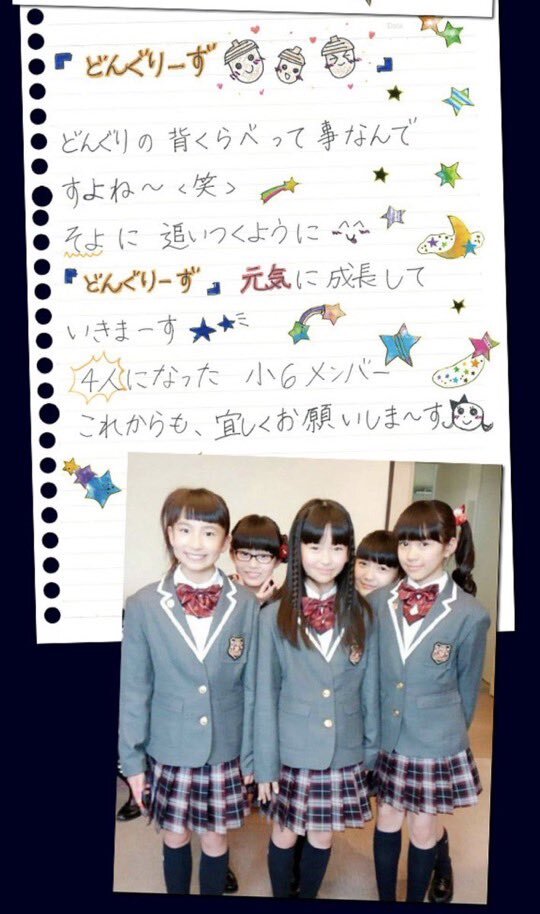 『どんぐりーず』
どんぐりの 背くらべって 事なんで
すよね～<笑>
そよに 追いつくように
『どんぐりーず』 元気に成長して
いきまーす
4人になった 小6メンバー
これからも、宜しくお願いしま〜す